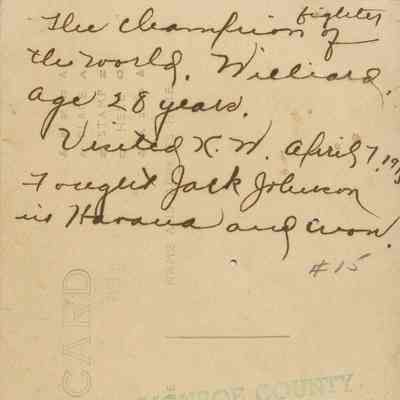 The champion fighter of
the world. Williard,
age 28 years.
Visited K.W. April 7, 1915
Fought Jack Johnson
in Havana and won.
#15
CARD
MONROE COUNTY